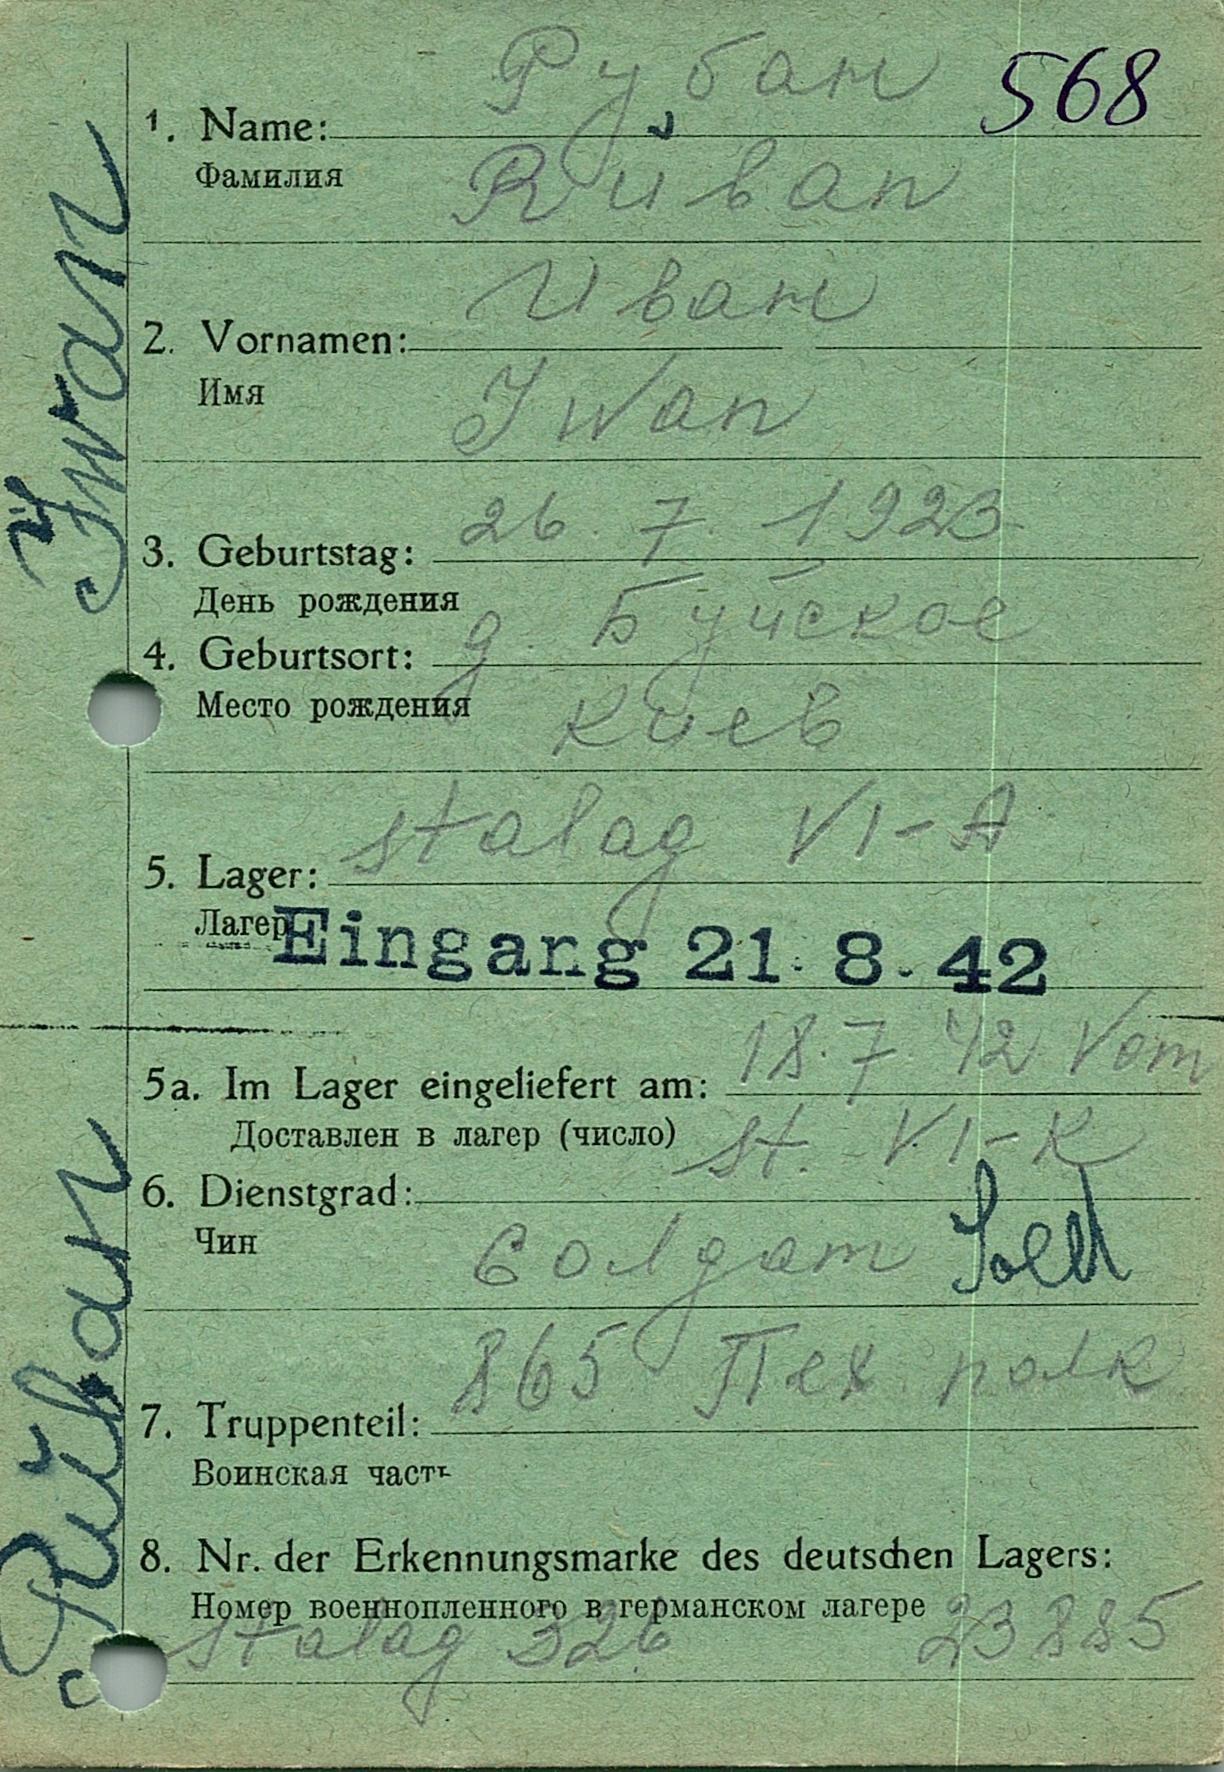 Рубан 568
1. Name:
Фамилия
Ruban
Иван
2. Vornamen:
Имя
Iwan
26. 7. 1923
3. Geburtstag:
День рождения
д. Буйское
4. Geburtsort:
Место рождения
Киев
Stalag VI-A
5. Lager:
Лагер
Eingang 21. 8. 42
18. 7. 42 Vom
5a. Im Lager eingeliefert am:
Доставлен в лагер (число)
St. VI-K
6. Dienstgrad:
Чин
Солдат Sold
865 Пех полк
7. Truppenteil:
Воинская часть
8. Nr. der Erkennungsmarke des deutschen Lagers:
Номер военнопленного в германском лагере
Stalag 326 23885
Ruban
Iwan